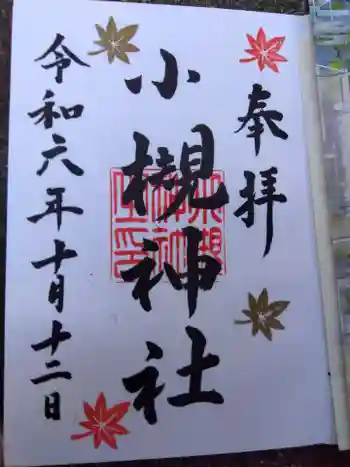 奉拝
小槻神社
令和六年十月十二日